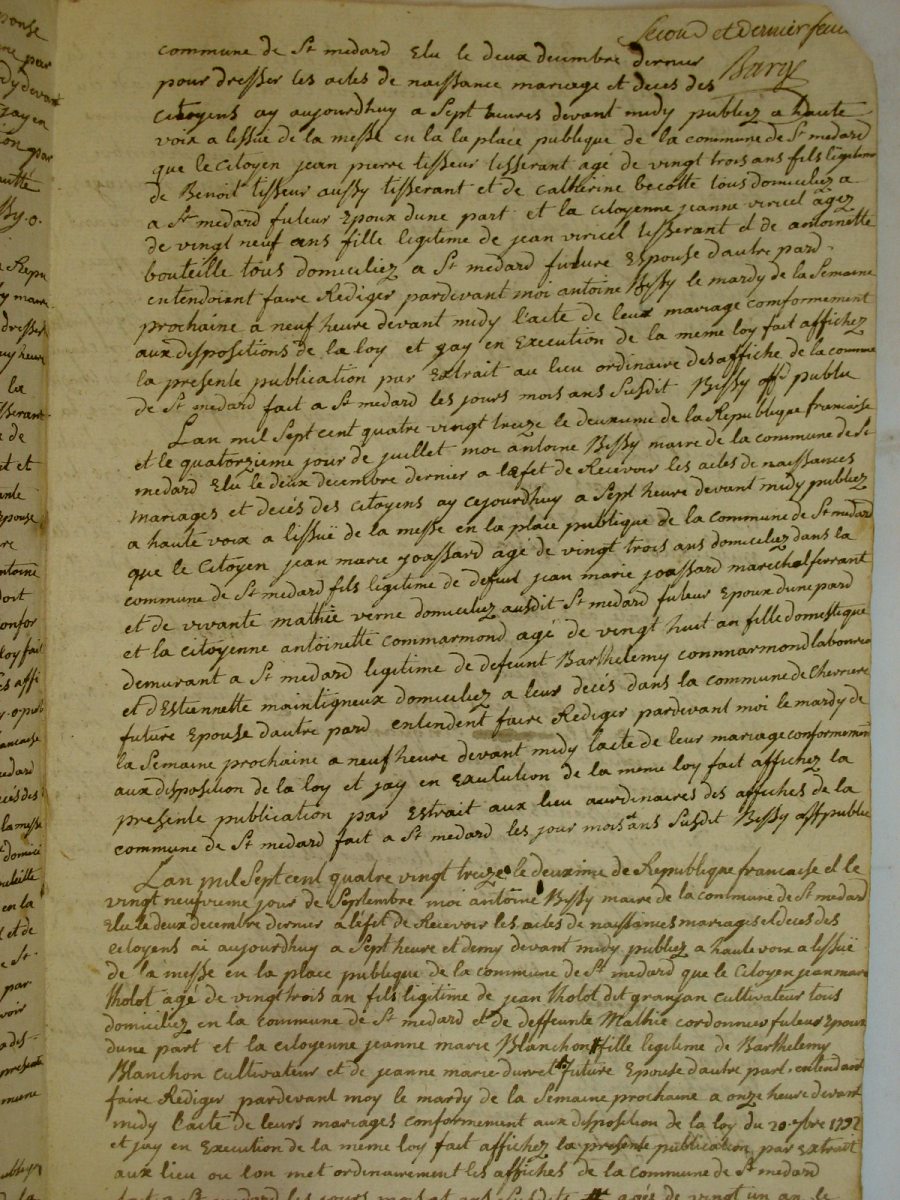 Second et dernier feuil
Barge
commune de St medard Elu le deux decembre dernier
pour dresser les actes de naissance mariage et deces des
citoyens ay aujourdhuy a Sept heures devant midy publiez a haute
voix a lissue de la messe en la la place publique de la commune de St medard
que le citoyen jean pierre tisseur tisserant agé de vingt trois ans fils legitime
de Benoit tisseur aussy tisserant et de catherine becotte tous domiciliez a
a St medard futeur Epoux dune part et la citoyenne jeanne viricel agez
de vingt neuf ans fille legitime de jean viricel tisserant et de antoinette
bouteille tous domiciliez a St medard future Espouse dautre pard
entendoient faire Rediger pardevant moi antoine Bissy le mardy de la Semaine
prochaine a neuf heure devant midy l'acte de leur mariage comformement
aux dispositions de la loy et jay en Execution de la meme loy fait affichez
la presente publication par Extrait au lieu ordinaire des affiche de la commune
de St medard fait a St medard les jours mois ans Susdit Bissy off publu
Lan mil Sept cent quatre vingt treize le deuxieme de la Republique francaise
et le quatorzieme jour de juillet moi antoine Bissy maire de la commune de St
medard Elu le deux decembre dernier a lefet de Recevoir les actes de naissances
mariages et decés des citoyens ay cejourdhuy a Sept heure devant midy publiez
a haute voix a lissuë de la messe en la place publique de la commune de St medard
que le Citoyen jean marie joassard agé de vingt trois ans domiciliez dans la
commune de St medard fils legitime de defeut jean marie joassard marechal ferrant
et de vivante mathie verne domiciliez audit St medard futeur Epoux dune pard
et la citoyenne antoinette commarmond agé de vingt huit an fille domestique
demurant a St medard legitime de defeunt Barthelemy commarmond laboureur
et dEstiennette maintigneux domiciliez a leur decés dans la commune de Chevriere
future Epouse dautre pard entendent faire Rediger pardevant moi le mardy de
la Semaine prochaine a neuf heure devant midy lacte de leur mariage conformement
aux disposition de la loy et jay en Exeulution de la meme loy fait affichez la
presente publication par Estrait aux lieu aurdinaires des affiches de la
commune de St medard fait a St medard les jour mois et ans Susdit Bissy off publu
Lan mil Sept cent quatre vingt treize le deuxime de Republique francaise et le
vingt neufvieme jour de Septembre moi antoine Bissy maire de la commune de St medard
Elu le deux decembre dernier a lefet de Recevoir les actes de naissances mariages et deces des
Citoyens ai aujourdhuy a Sept heure et demy devant midy publiez a haute voix a lissuë
de la messe en la place publique de la commune de St medard que le Citoyen jean marie
tholot agé de vingt trois an fils legitime de jean tholot dit granjan cultivateur tous
domiciliez en la commune de St medard et de deffeunte Mathie cordonnier futeur Epoux
dune part et la citoyenne jeanne marie Blanchon fille legitime de Barthelemy
Blanchon cultivateur et de jeanne marie durret future Epouse dautre part entendait
faire Rediger pardevant moy le mardy de la Semaine prochaine a onze heure devant
midy l'acte de leurs mariages conformement aux disposition de la loy du 20 7bre 1792
et jay en Execution de la meme loy fait affichez la presente publication par Extrait
aux lieu ou lon met ordinairement les affiches de la commune de St medard
fait a St medard les jours mois et ans Susdits agés de vingt un an